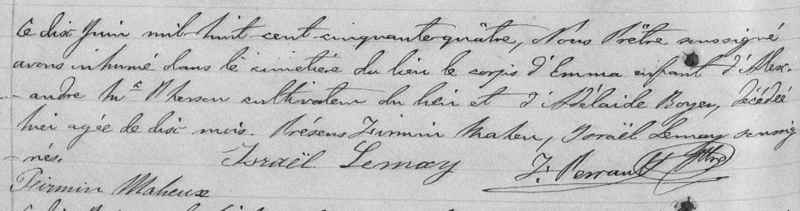 Ce dix Juin mil-huit-cent-cinquante-quâtre, Nous Prêtre soussigné
avons inhumé dans le cimetière du lieu le corps d'Emma enfant d'Alex-
andre Mc Pherson cultivateur du lieu et d'Adélaïde Boyer, décédée
hier agée de dix mois. Présens Firmin Maheu, Israël Lemay soussig-
-nés. Israël Lemay J. Perrault Ptre
Firmin Maheux